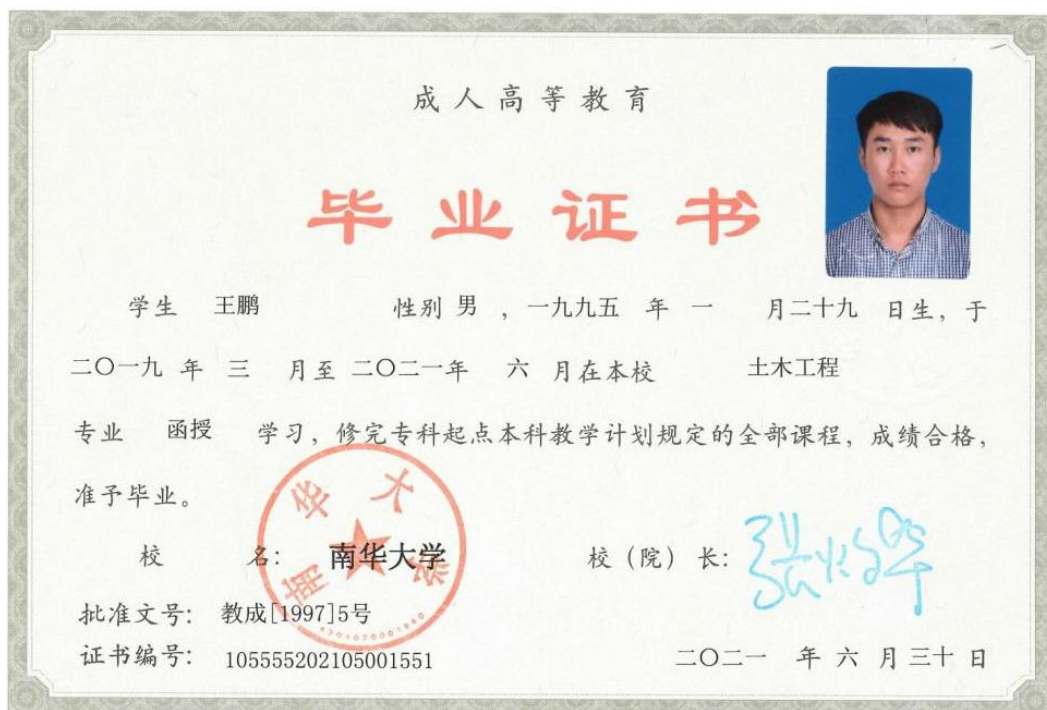 成人高等教育
毕业证书
学生 王鹏 性别 男 ，一九九五 年 一 月二十九 日生，于
二〇一九 年 三 月至 二〇二一年 六 月在本校 土木工程
专业 函授 学习，修完专科起点本科教学计划规定的全部课程，成绩合格，
准予毕业。
校 名： 南华大学 校（院）长：
南华大学
批准文号： 教成[1997]5号
证书编号： 105555202105001551 二〇二一 年 六 月 三十 日